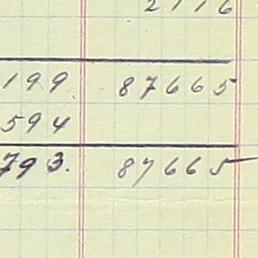 2116
199 87665
594
793. 87665